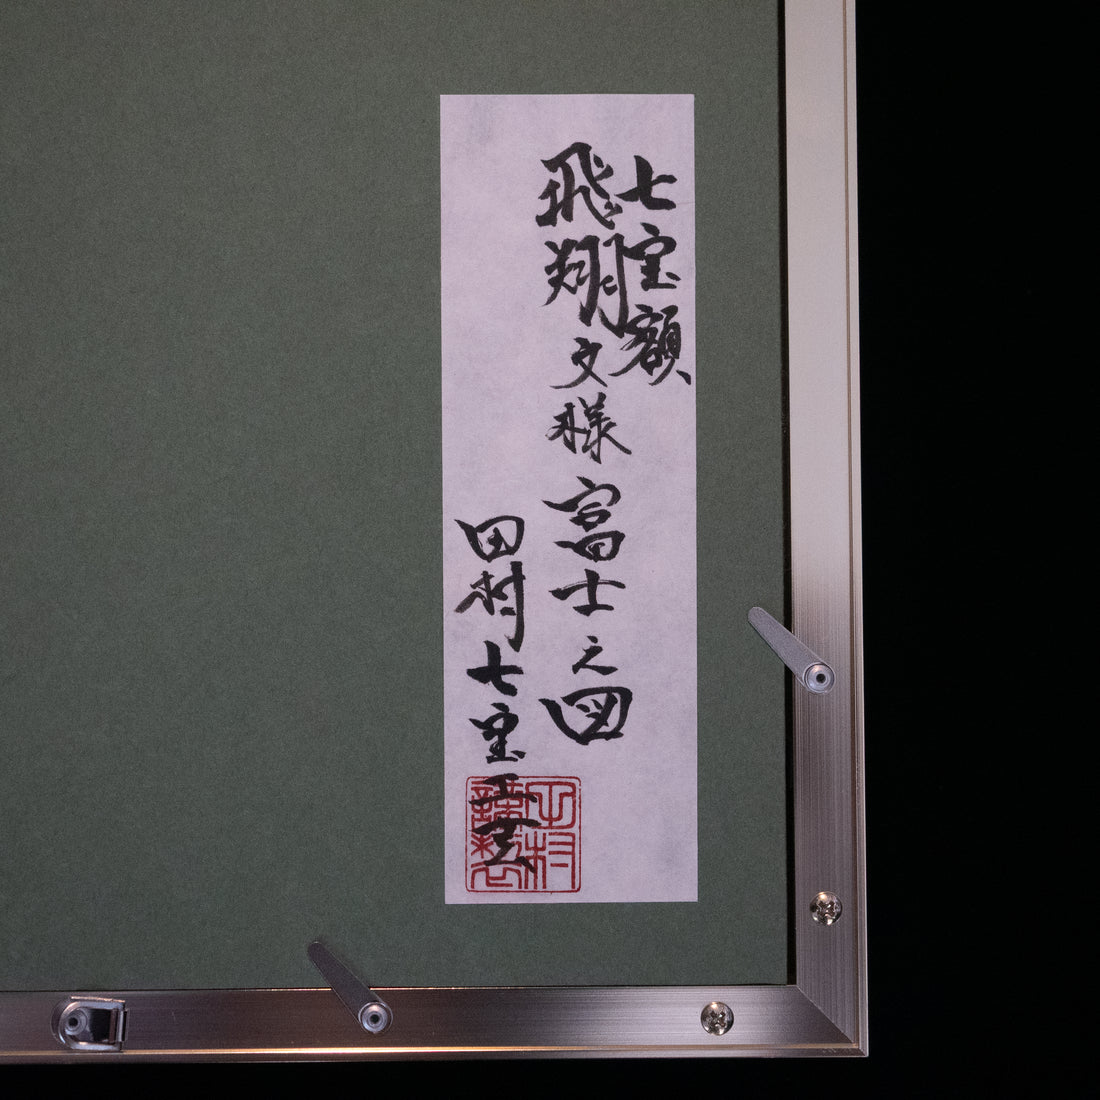 七宝額
飛翔文様富士之図
田村七宝工芸